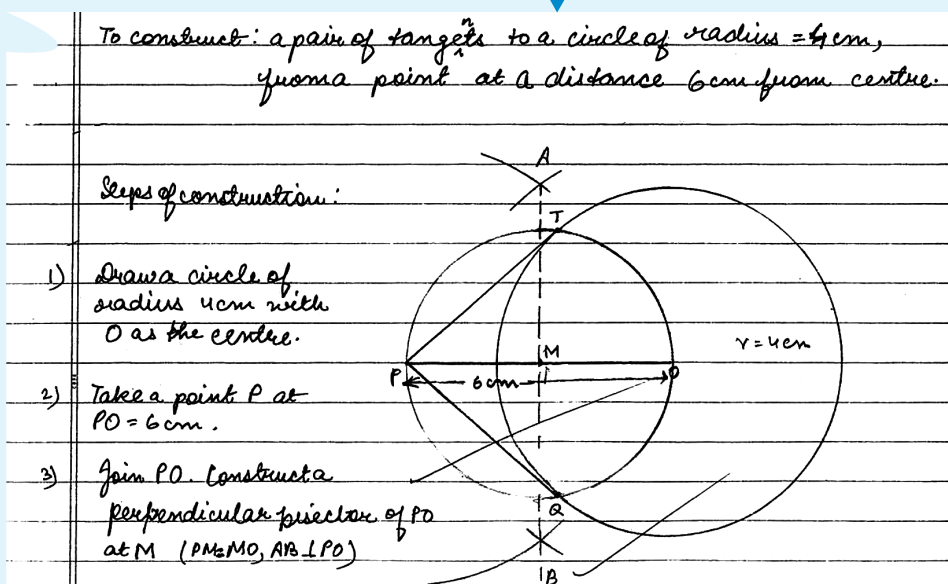 To construct : a pair of tangents to a circle of radius = 4 cm,
from a point at a distance 6 cm from centre.
A
Steps of construction :
T
1) Draw a circle of
radius 4 cm with
O as the centre.
r = 4 cm
M
P 6 cm O
2) Take a point P at
PO = 6 cm .
3) Join PO. Construct a
perpendicular bisector of PO
at M (PM = MO, AB ⊥ PO)
Q
B